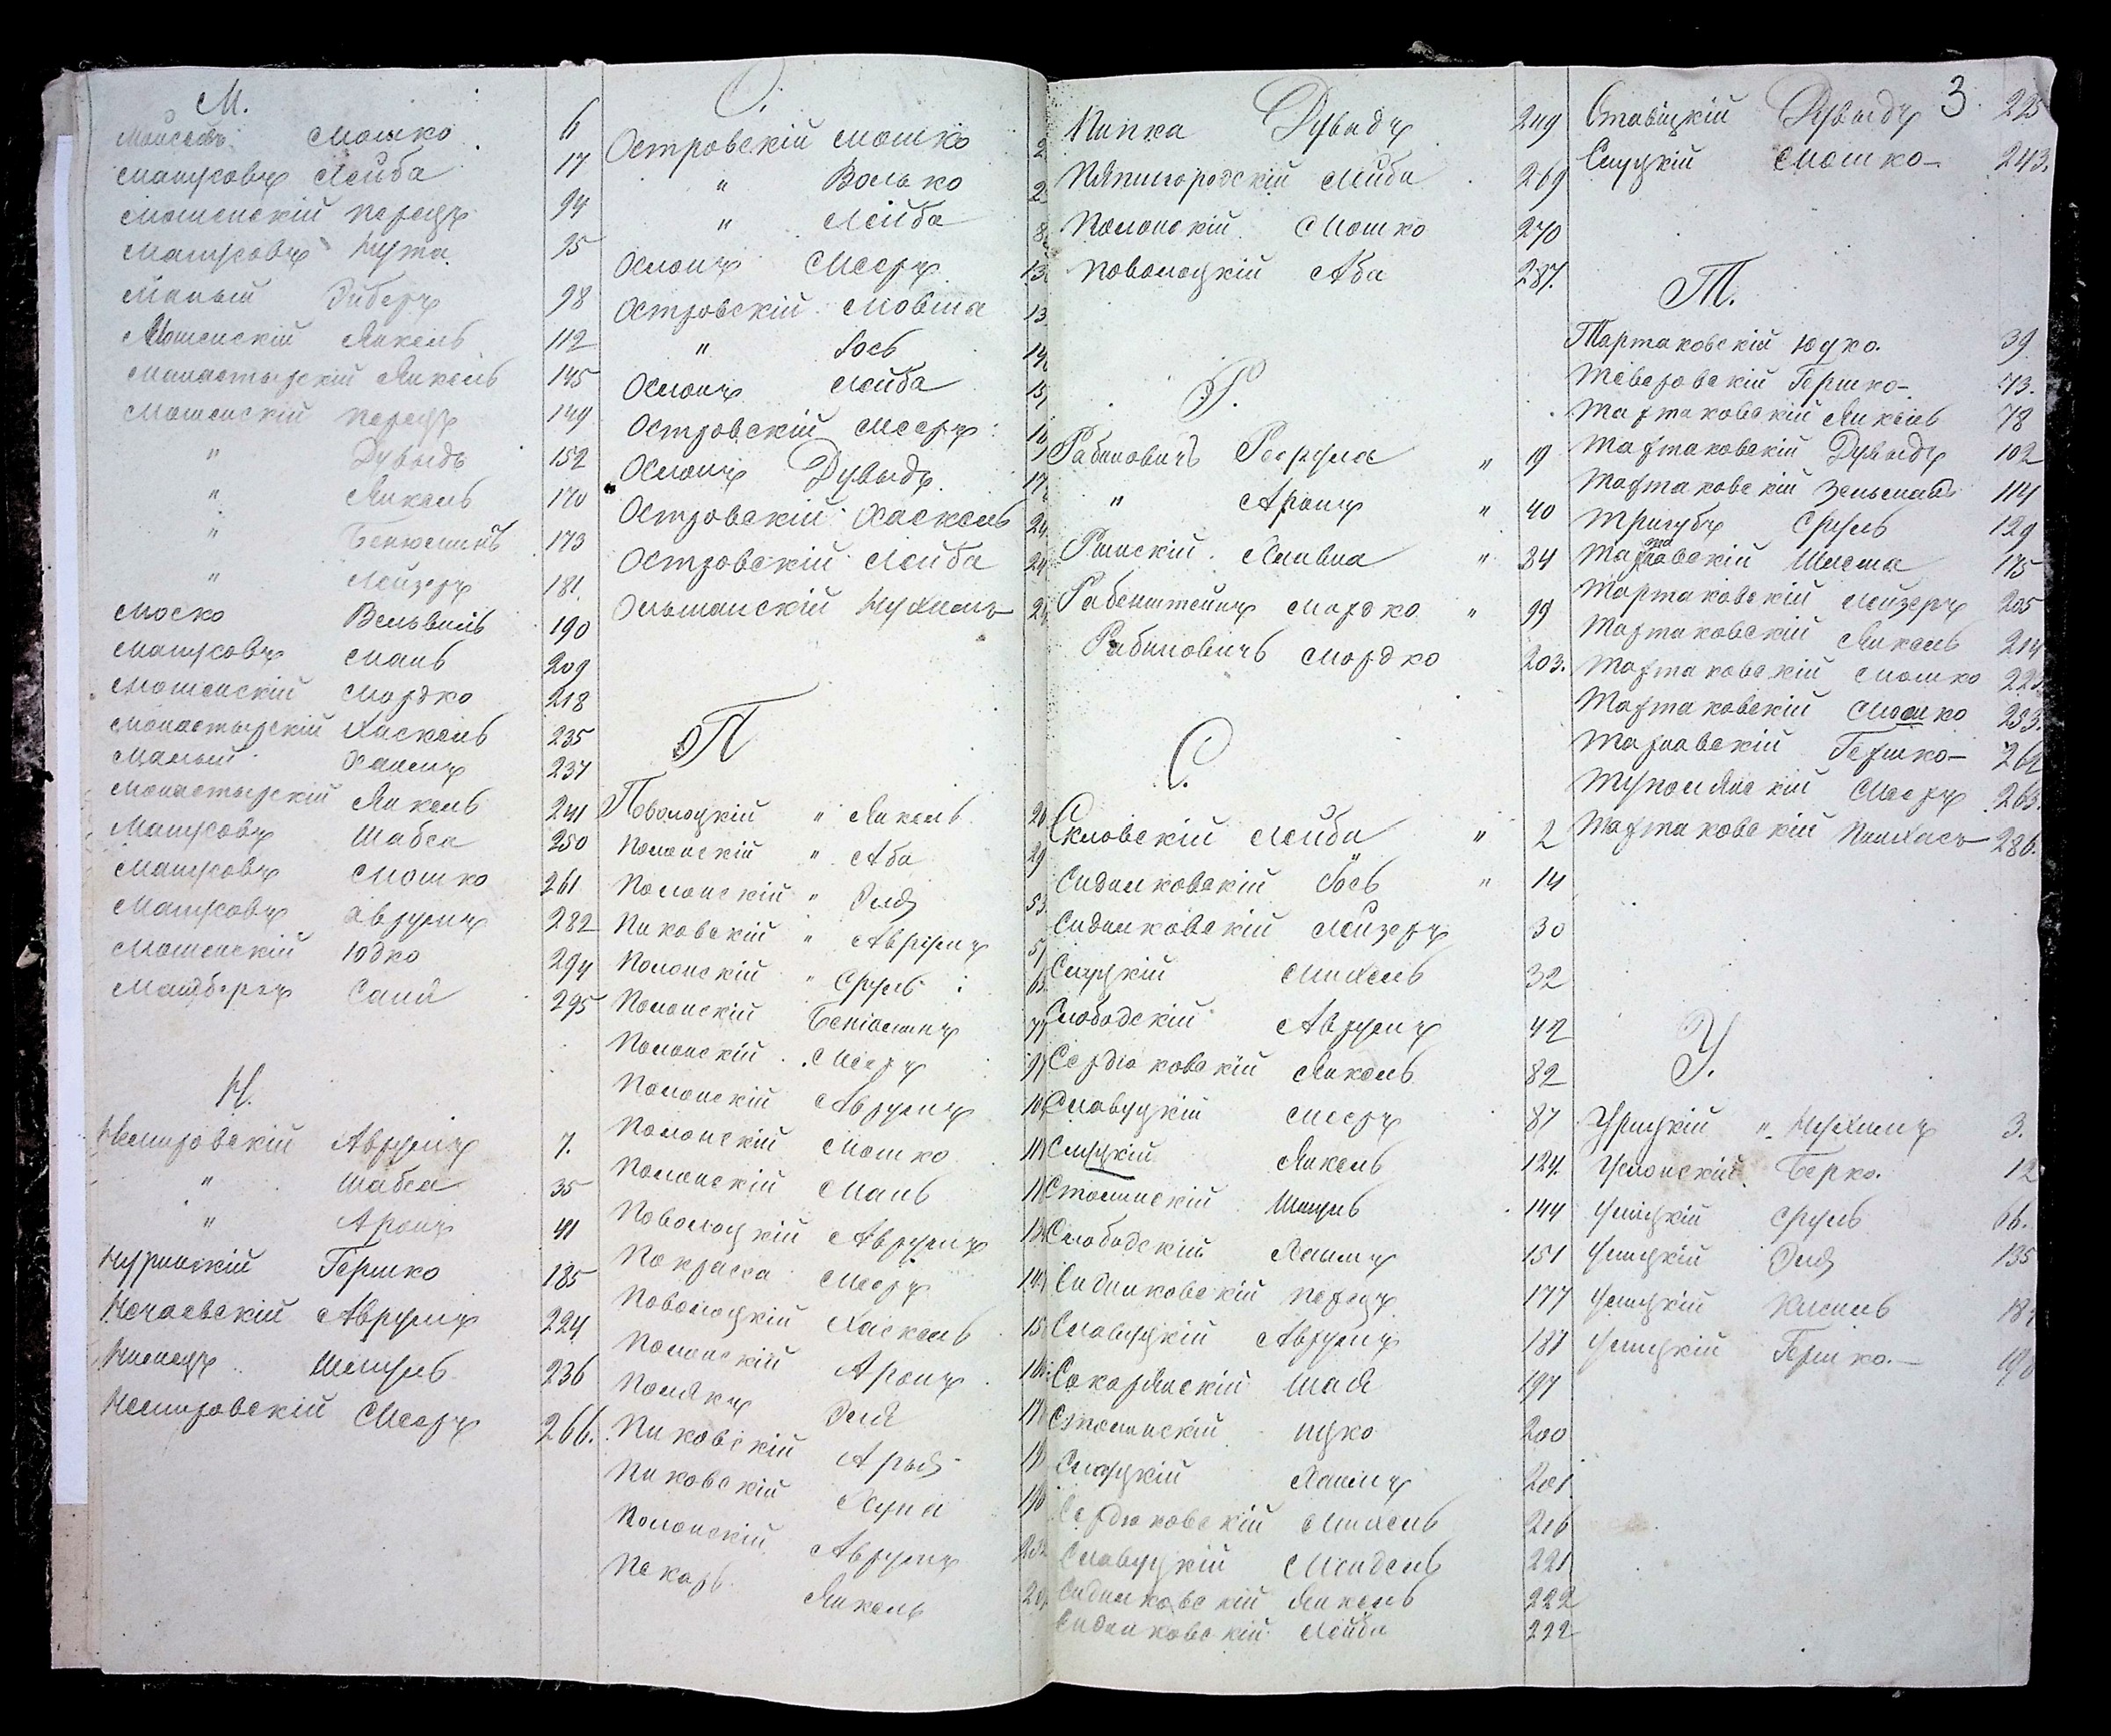 М.
Моисеевъ Мошко 6
Матусовъ Лейба 17
Мошенскій Перецъ 94
Матусовъ Нута 95
Малый 98
Мошенскій Янкель 112
Монастырскій Янкель 145
Мошенскій Перецъ 149
" Дувыдъ 152
" Янкель 170
" Беньюминъ 173
" Лейзеръ 181
Моско Вельвель 190
Матусовъ Мань 209
Мошенскій Мордко 218
Монастырскій Хаскель 235
Малый Хаимъ 237
Монастырскій Янкель 241
Матусовъ Шабса 250
Матусовъ Мошко 261
Матусовъ Аврумъ 282
Мошенскій Юдко 294
Саня 295
Н.
Немировскій Аврумъ 7.
" Шабса 35
" Аронъ 41
Гершко 185
Нечаевскій Аврумъ 224
Шмуль 236
Немировскій Мееръ 266.
О.
Островскій Мошко
" Волько
" Лейба
Ослонъ Мееръ
Островскій Мовша
" Іось
Ослонъ Лейба
Островскій Мееръ
Ослонъ Дувыдъ
Островскій Хаскель
Островскій Лейба
Ольшанскій Нухимъ
П
Поволоцкій " Янкель
Полонскій " Аба
Полонскій " Эля
Пиковскій " Аврумъ
Полонскій " Сруль
Полонскій Беніоминъ
Полонскій Мееръ
Полонскій Аврумъ
Полонскій Мошко
Полонскій Мань
Поволоцкій Аврумъ
Покрасса Мееръ
Поволоцкій Хаскель
Полонскій Аронъ
Полякъ Эля
Пиковскій Арья
Пиковскій Хуна
Полонскій Аврумъ
Пекарь Янкель
Пипка Дувыдъ 249
Пятигородскій Лейба 269
Полонскій Мошко 270
Поволоцкій Аба 287.
Р.
Рабиновичъ " 19
" Аронъ " 40
" 84
Рабенштейнъ Мордко " 99
Рабиновичъ Мордко 203.
С.
Скловскій Лейба " 2
Сиданковскій Іось " 14
Сиданковскій Лейзеръ 30
Слуцкій Михель 32
Слободскій Аврумъ 42
Сердюковскій Янкель 82
Славуцкій Мееръ 87
Слуцкій Янкель 124.
Столинскій Шмуль 144
Слободскій Хаимъ 151
Сиданковскій Перецъ 177
Славуцкій Аврумъ 187
Сокорянскій Шая 197
Столинскій Ицко 200
Слуцкій Хаимъ 201
Сердюковскій Михель 216
Славуцкій Мендель 221
Сиданковскій Янкель 222
Сиданковскій Лейба 222
3.
Ставіцкій Дувыдъ 225
Слуцкій Мошко 243.
Т.
Тартаковскій Юдко. 39
Теверовскій Гершко 73.
Тартаковскій Янкель 78
Тартаковскій Дувыдъ 102
Тартаковскій Зельманъ 114
Тригубъ Сруль 129
Шлема 175
Тартаковскій Лейзеръ 205
Тартаковскій Янкель 214
Тартаковскій Мошко
Тартаковскій Мошко 253.
Тарлавскій Гершко
Мееръ 265.
Тартаковскій Пинхасъ 286.
У.
Урицкій " Нухимъ 3.
Услонскій Берко. 12
Улицкій Сруль 66.
Улицкій Эля 135
Улицкій Кисиль
Улицкій Гершко.